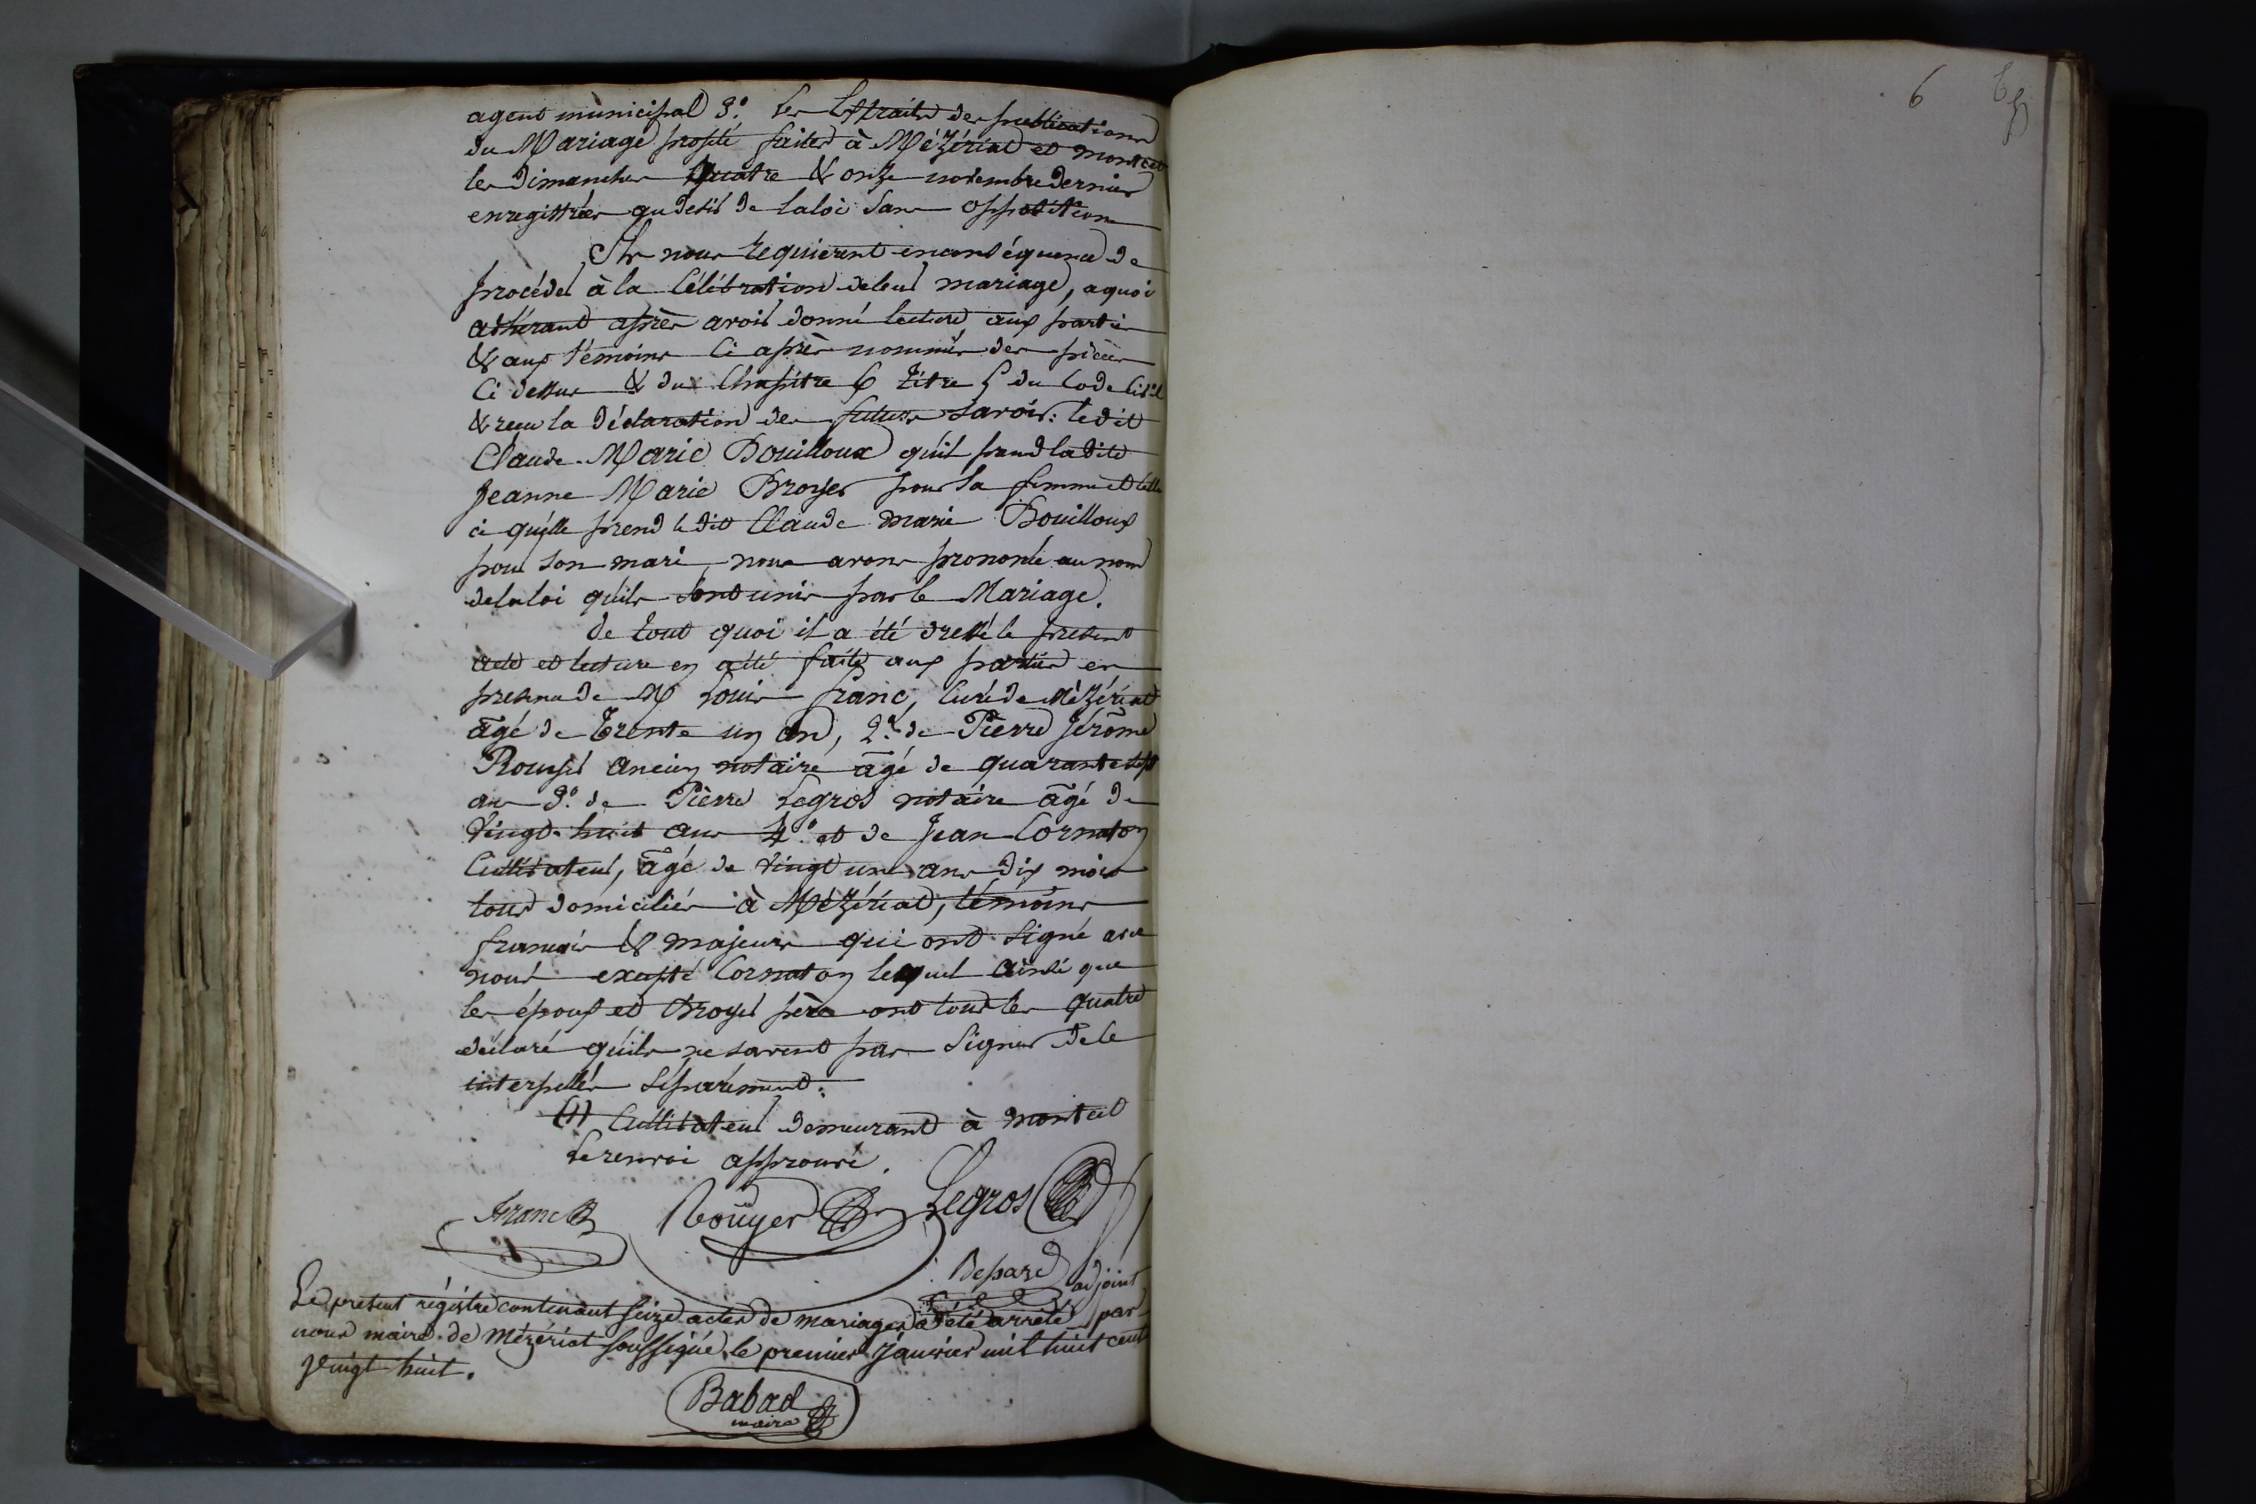 agent municipal 3.° les Extraits des publications
du Mariage projeté faites à Mézériat et montcet
les Dimanches quatre & onze novembre dernier
enregistrées au desir de la loi sans opposition
Ils nous requierent en conséquence de
procéder à la Célébration de leur mariage, a quoi
adhérant après avoir donné lecture aux parties
& aux témoins ci après nommés des pièces
ci dessus & du Chapitre 6 titre 5 du Code Civil
& reçu la Déclaration des futurs savoir: ledit
Claude-Marie Bouilloux qu'il prend ladite
Jeanne Marie Broyer pour sa femme et celle
ci qu'elle prend le dit Claude marie Bouilloux
pour son mari, nous avons prononcé au nom
de la loi qu'ils sont unis par le Mariage.
de tout quoi il a été dressé le présent
acte et lecture en a été faite aux parties en
presence de M Louis franc, Curé de Mézériat
âgé de trente un an, 2.° de Pierre Jérôme
Rouyer ancien notaire âgé de quarante sept
ans 3.° de Pierre Legros notaire âgé de
vingt-huit ans 4.° et de Jean Cornaton
Cultivateur, âgé de vingt un ans dix mois
tous domiciliés à Mézériat, témoins
français & majeurs qui ont signé avec
nous excepté Cornaton lequel ainsi que
les époux et Broyer père ont tous les quatre
déclaré qu'ils ne savent pas signer de ce
interpellés séparément.
(1) Cultivateur demeurant à montcet
le renvoi approuvé.
Franc Rouyer Legros
adjoint
Le present régistre contenant seize actes de mariages a été arrêté par
nous maire de Mézériat soussigné le premier janvier mil huit cent
vingt huit.
Babad
maire
6